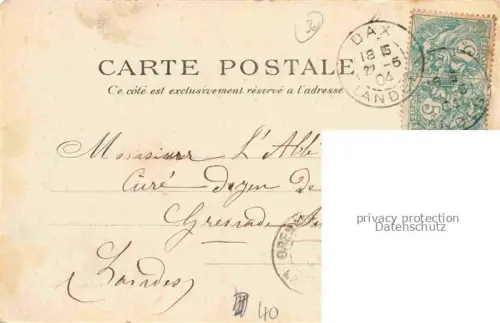 30
CARTE POSTALE
Ce côté est exclusivement réservé à l'adresse
DAX
18 15
22 -5
04
LANDES
5
5
Monsieur L'Abbé
Curé Doyen de
Grenade
(Landes)
privacy protection
Datenschutz
40